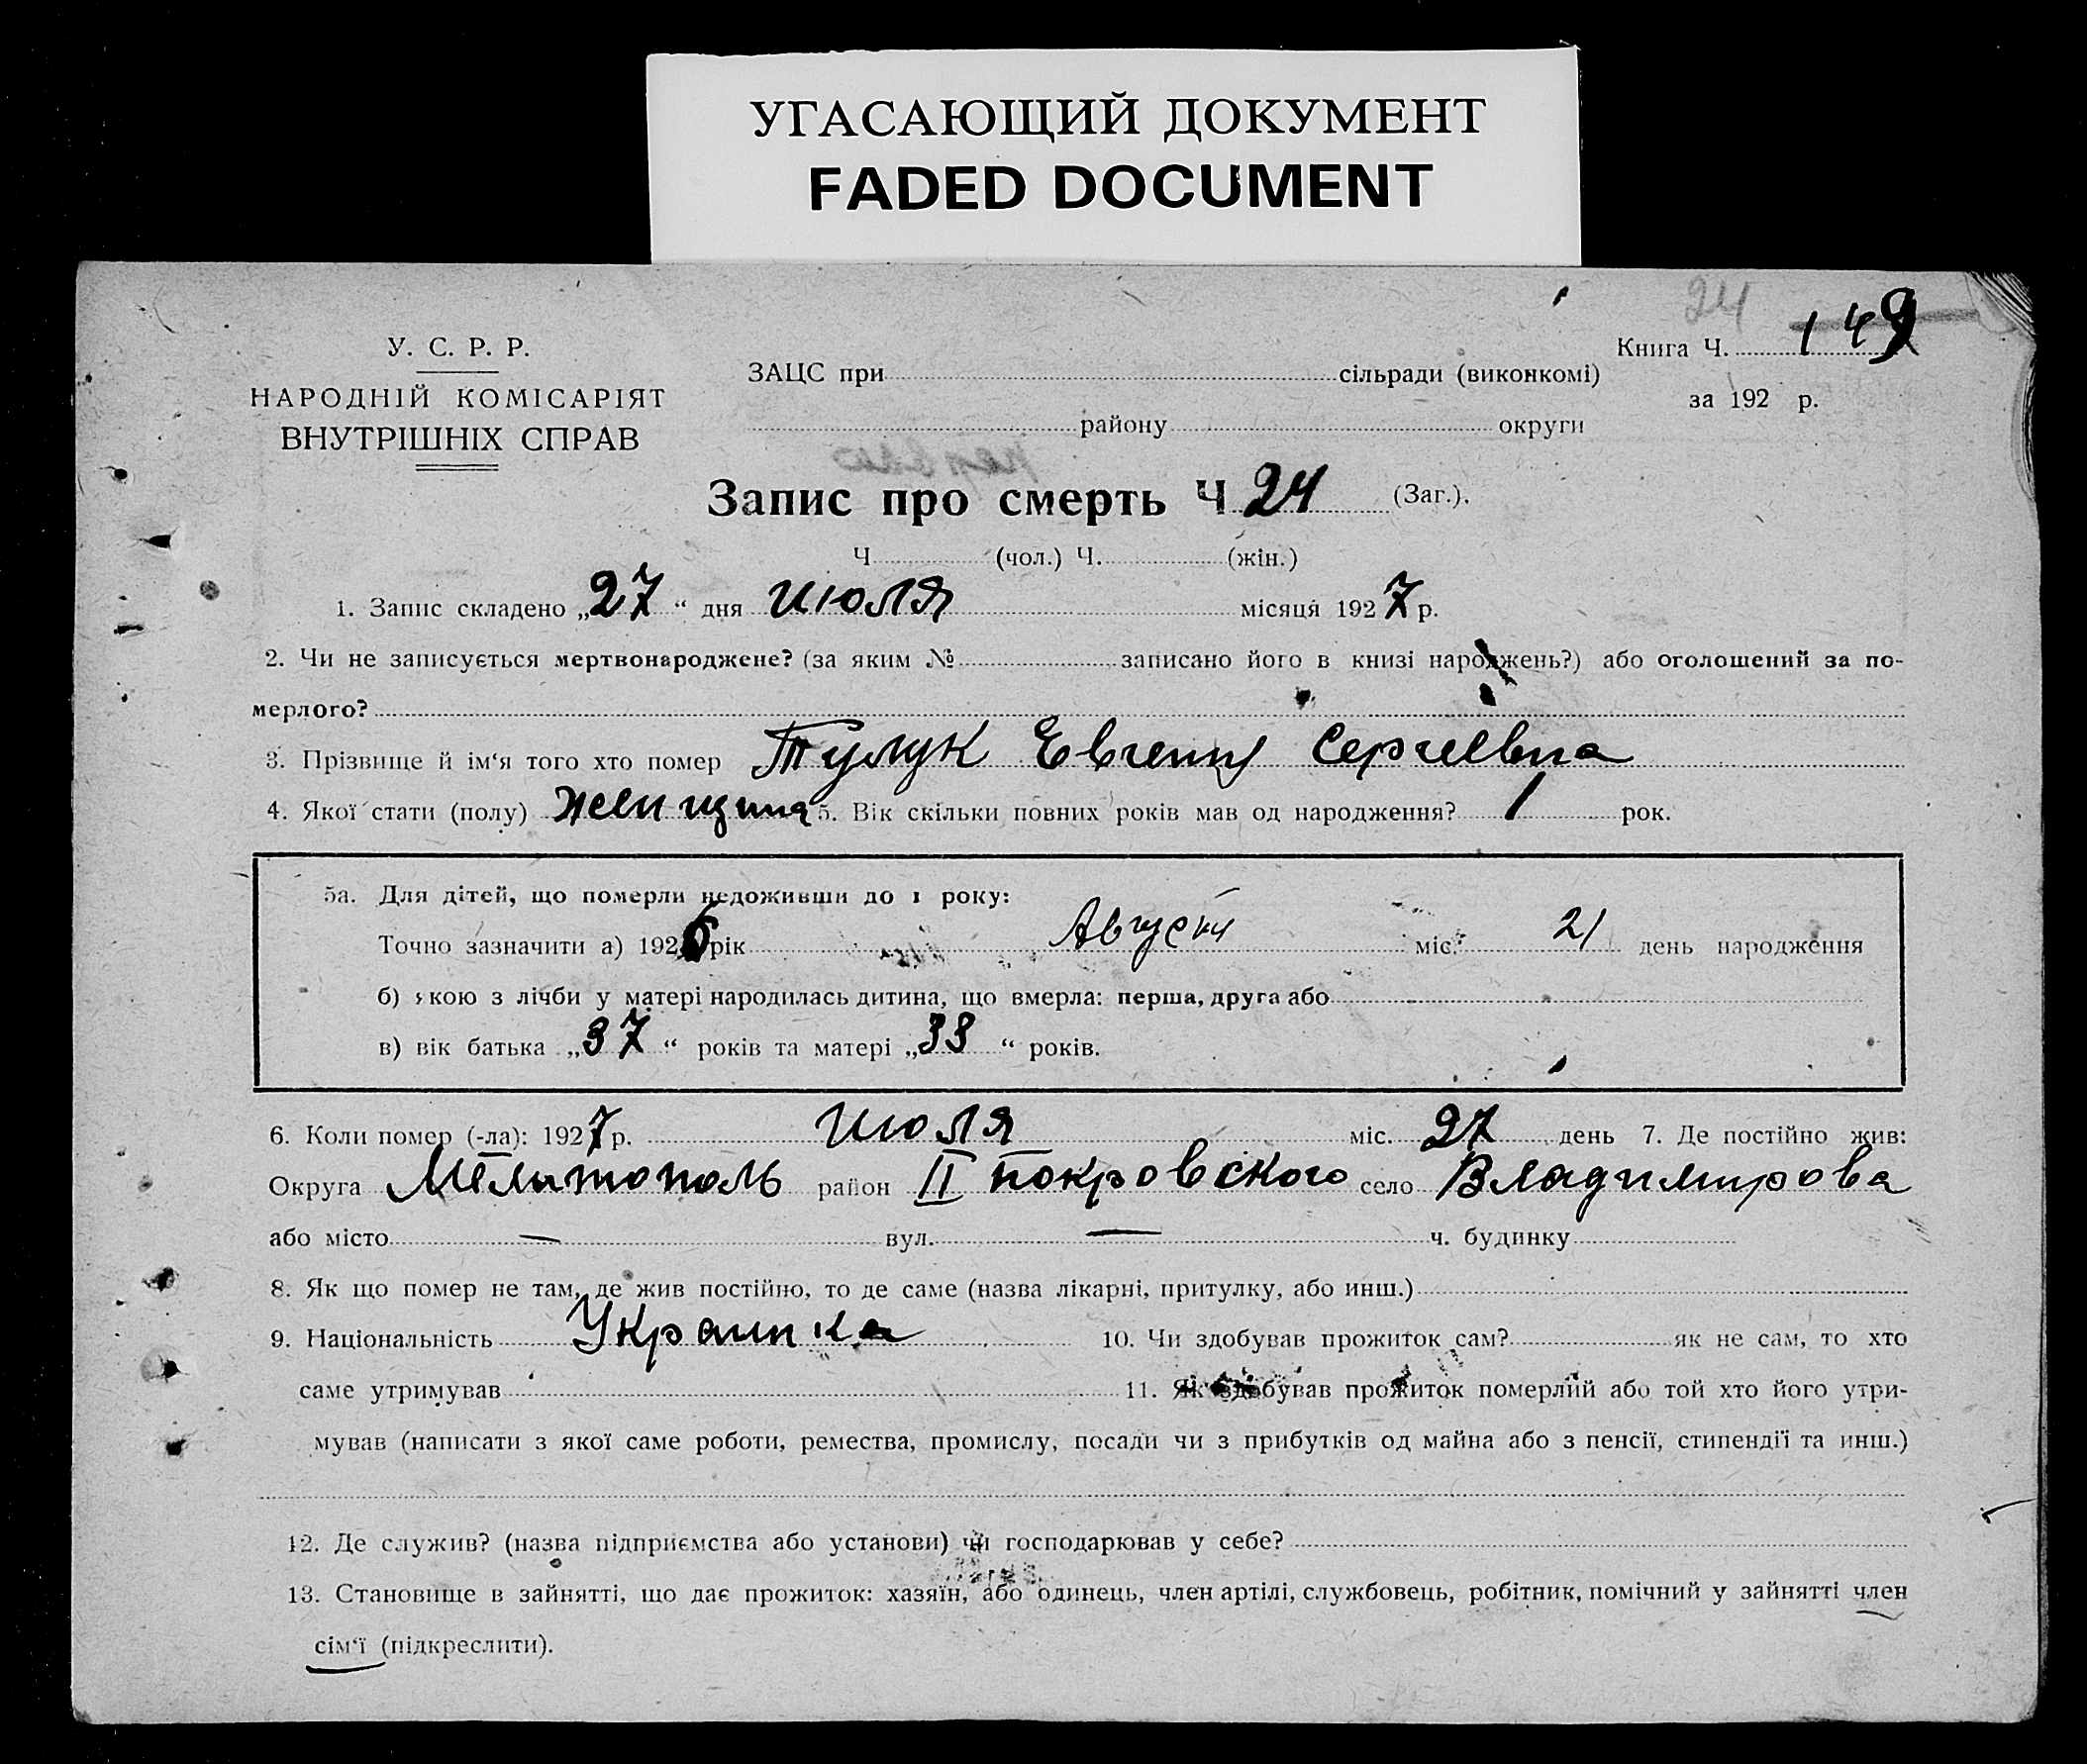 УГАСАЮЩИЙ ДОКУМЕНТ
FADED DOCUMENT
24
У. С. Р. Р.
НАРОДНІЙ КОМІСАРІЯТ
ВНУТРІШНІХ СПРАВ
ЗАЦС при сільради (виконкомі)
району округи
Книга Ч. 149
за 192 р.
Запис про смерть Ч 24 (Заг.).
Ч (чол.) Ч. (жін.)
1. Запис складено „27“ дня июля місяця 1927 р.
2. Чи не записується мертвонароджене? (за яким № записано його в книзі народжень?) або оголошений за по-
мерлого?
3. Прізвище й ім‘я того хто помер Тулук Евгения Сергеевна
4. Якої стати (полу) Женщина 5. Вік скільки повних років мав од народження? 1 рок.
5а. Для дітей, що померли недоживши до 1 року:
Точно зазначити а) 1926 рік Август міс. 21 день народження
б) якою з лічби у матері народилась дитина, що вмерла: перша, друга або
в) вік батька „37“ років та матері „33“ років.
6. Коли помер (-ла): 1927 р. июля міс. 27 день 7. Де постійно жив:
Округа Мелитополь район II покровского село Владимирова
або місто — вул. — ч. будинку
8. Як що помер не там, де жив постійно, то де саме (назва лікарні, притулку, або инш.)
9. Національність Украинка 10. Чи здобував прожиток сам? як не сам, то хто
саме утримував 11. Як здобував прожиток померлий або той хто його утри-
мував (написати з якої саме роботи, ремества, промислу, посади чи з прибутків од майна або з пенсії, стипендії та инш.)
12. Де служив? (назва підприємства або установи) чи господарював у себе?
13. Становище в зайнятті, що дає прожиток: хазяїн, або одинець, член артілі, службовець, робітник, помічний у зайнятті член
сім‘ї (підкреслити).